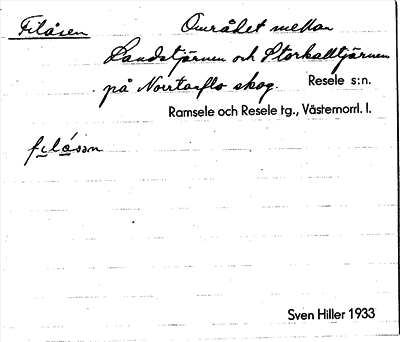 Filåsen Området mellan
Sandstjärnen och Storkalltjärnen
på Norrtasflo skog. Resele s:n.
Ramsele och Resele tg., Västernorrl. l.
filåsən
Sven Hiller 1933